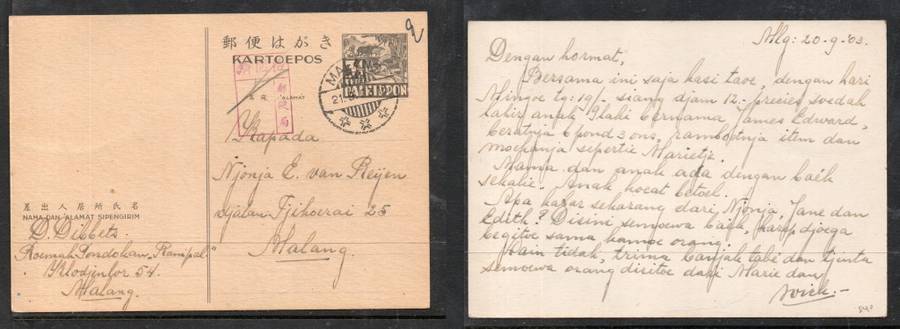 郵便はがき
KARTOEPOS
ALAMAT
DAI NIPPON
Kapada
Njonja E. van Reijen
Djalan Tjikoerai 25
Malang.
差出人居所氏名
NAMA DAN ALAMAT SIPENGIRIM
D. Dibbets
Roemah Pondokan "Rampal"
Klodjenlor 54.
Malang.
Mlg: 20-9-'03.
Dengan hormat,
Bersama ini saja kasi taoe, dengan hari
Minggoe tg: 19/- siang djam 12.- precies soedah
lahir anak laki bernama James Edward,
beratnja 6 pond 3 ons, ramboetnja item dan
moekanja sepertie Marietje.
Mama dan anak ada dengan baik
sekalie. Anak koeat betoel.
Apa kabar sekarang dari Njonja, Jane dan
Edith? Disini semoewa baik, harep djoega
begitoe sama kamoe orang.
Lain tidak, trima banjak tabi dan tjinta
semoewa orang disitoe dari Marie dan